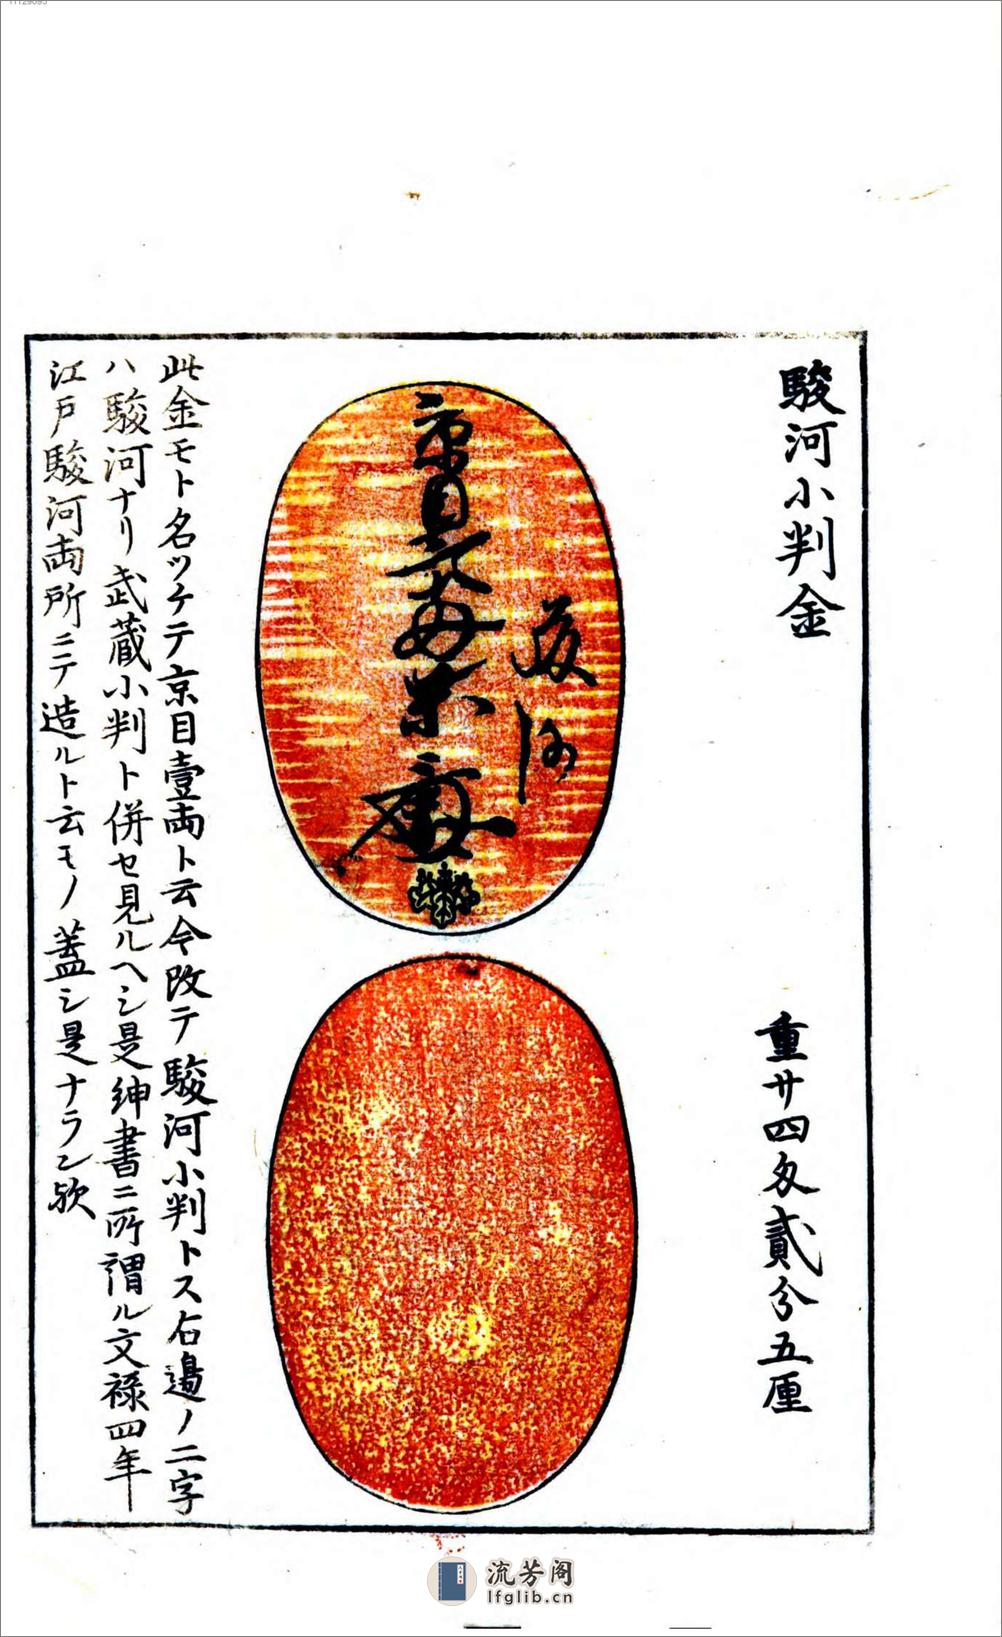 駿河小判金
重廿四匁貳分五厘
駿河
京目壹両
此金モト名ツケテ京目壹両ト云今改テ駿河小判トス右邉ノ二字
ハ駿河ナリ武蔵小判ト併セ見ルヘシ是紳書ニ所謂ル文禄四年
江戸駿河両所ニテ造ルト云モノ蓋シ是ナラン欤
流芳阁
lfglib.cn